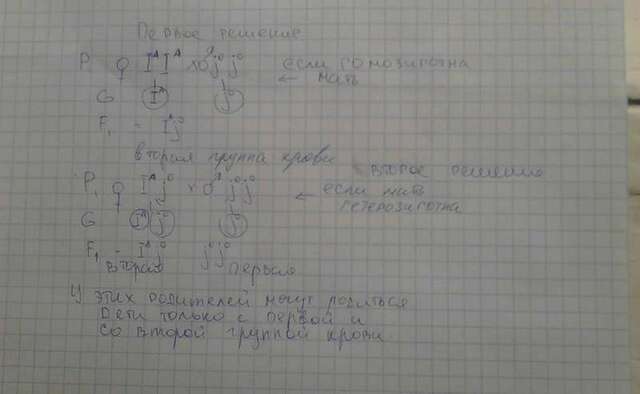 Первое решение
P ♀ IᴬIᴬ x ♂ j⁰j⁰ если гомозиготна
← мать
G Iᴬ j⁰
F₁ - Iᴬj⁰
вторая группа крови
второе решение
P₁ ♀ Iᴬj⁰ x ♂ j⁰j⁰ ← если мать
гетерозиготна
G Iᴬ j⁰ j⁰
F₁ - Iᴬj⁰ j⁰j⁰
вторая первая
У этих родителей могут родиться
Дети только с первой и
со второй группой крови